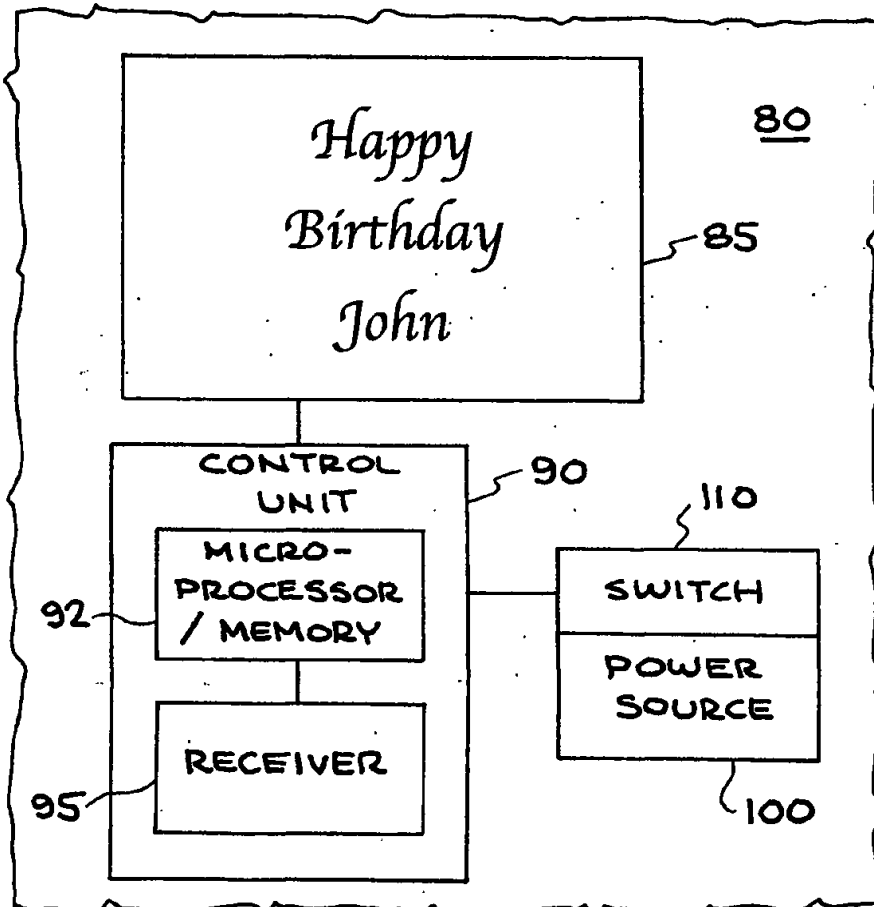 80
Happy
Birthday
John
85
CONTROL
UNIT
90
MICRO-
PROCESSOR
/ MEMORY
92
RECEIVER
95
110
SWITCH
POWER
SOURCE
100